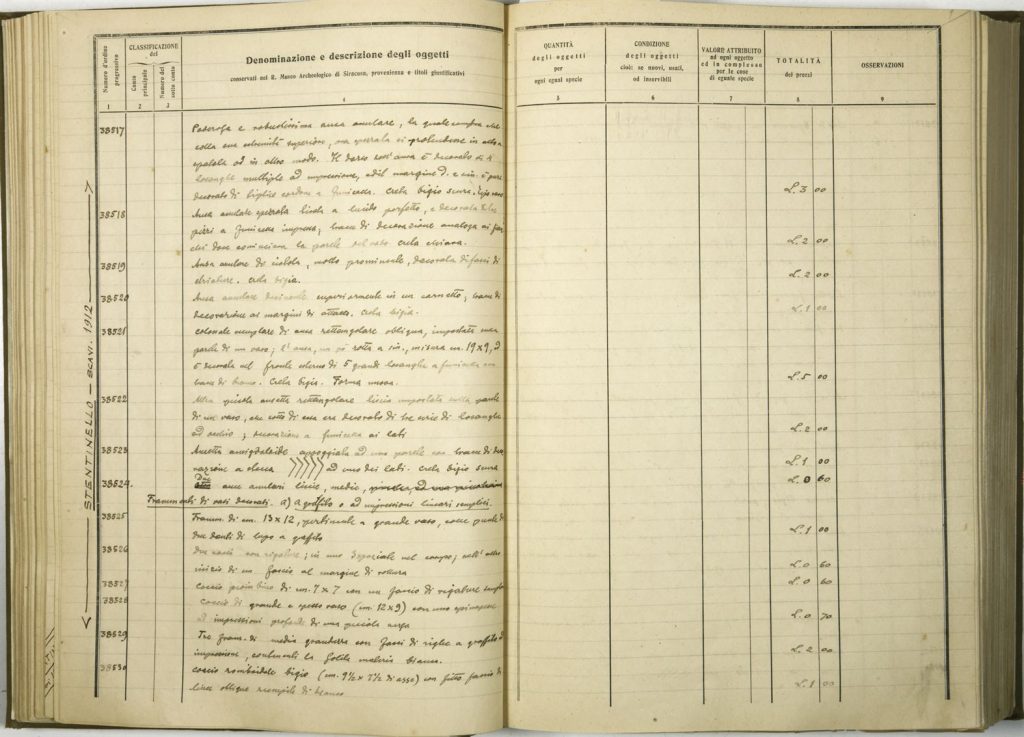 Numero d'ordine progressivo
CLASSIFICAZIONE
del
Conto principale
Numero del sotto conto
Denominazione e descrizione degli oggetti
conservati nel R. Museo Archeologico di Siracusa, provenienza e titoli giustificativi
1 2 3 4
QUANTITÀ
degli oggetti
per
ogni egual specie
5
CONDIZIONE
degli oggetti
cioè: se nuovi, usati,
od inservibili
6
VALORE ATTRIBUITO
ad ogni oggetto
ed in complesso
per le cose
di eguale specie
7
TOTALITÀ
dei prezzi
8
OSSERVAZIONI
9
STENTINELLO — SCAVI. 1912
38517 Poderosa e robustissima ansa anulare, la quale sembra che
colla sua estremità superiore, ora spezzata si protendesse in alto a
spatola od in altro modo. Il dorso dell'ansa è decorato di 4
losanghe multiple ad impressione, ed il margine d. e sin. è pure
decorato di cordone a funicella. Creta bigio scura. L. 3 00
38518 Ansa anulare spezzata liscia a lucido perfetto, e decorata
a funicella impressa; tracce di decorazione analoga ai
dove cominciava la parete del vaso creta chiara. L. 2 00
38519 Ansa anulare di ciotola, molto prominente, decorata di fasci di
striature. Creta bigia. L. 2 00
38520 Ansa anulare desinente superiormente in un cornetto; tracce di
decorazione ai margini di attacco. Creta bigia. L. 1 00
38521 Colossale esemplare di ansa rettangolare obliqua, impostata sulla
parete di un vaso; l'ansa, un pò rotta a sin., misura cm. 19 x 9, ed
è decorata nel fronte esterno di 5 grandi losanghe a funicella con
tracce di bianco. Creta bigia. Forma nuova. L. 5 00
38522 Altra piccola ansetta rettangolare liscia impostata sulla parete
di un vaso, che sotto di essa era decorato di tre serie di losanghe
ad occhio; decorazione a funicella ai lati L. 2 00
38523 Ansetta amigdaloide appoggiata ad una parete con tracce di deco
razione a stecca ad uno dei lati. Creta bigio scura L. 1 00
38524 Due anse anulari liscie, medie, L. 0 60
Frammenti di vasi decorati. a) A graffito o ad impressioni lineari semplici.
38525 Framm. di cm. 13 x 12, pertinente a grande vaso, come
due denti di lupo a graffito L. 1 00
38526 due cocci con rigature; in uno nel campo; nell'altro
inizio di un fascio al margine di rottura L. 0 60
38527 Coccio di cm. 7 x 7 con un fascio di rigature L. 0 60
38528 Coccio di grande e spesso vaso (cm. 12 x 9) con uno
ad impressioni profonde di una piccola L. 0 70
38529 Tre fram. di media grandezza con fasci di righe a graffito o
impressione, contenenti la solita materia bianca. L. 2 00
38530 Coccio romboidale bigio (cm. 9½ x 7½ di asse) con fitto fascio di
linee oblique riempite di bianco L. 1 00